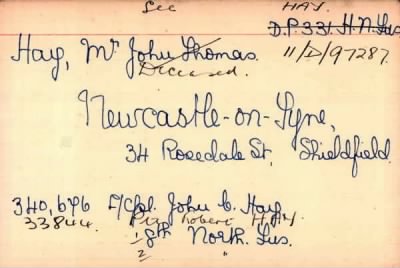 See HAY.
D.P. 331. H.N. Fus
Hay, Mr John Thomas. 11/D/97287.
Deceased.
Newcastle-on-Tyne,
34 Rosedale St, Shieldfield.
340,676 L/Cpl. John C. Hay,
33844. Pte Robert HAY
1/8th North. Fus.
2 "